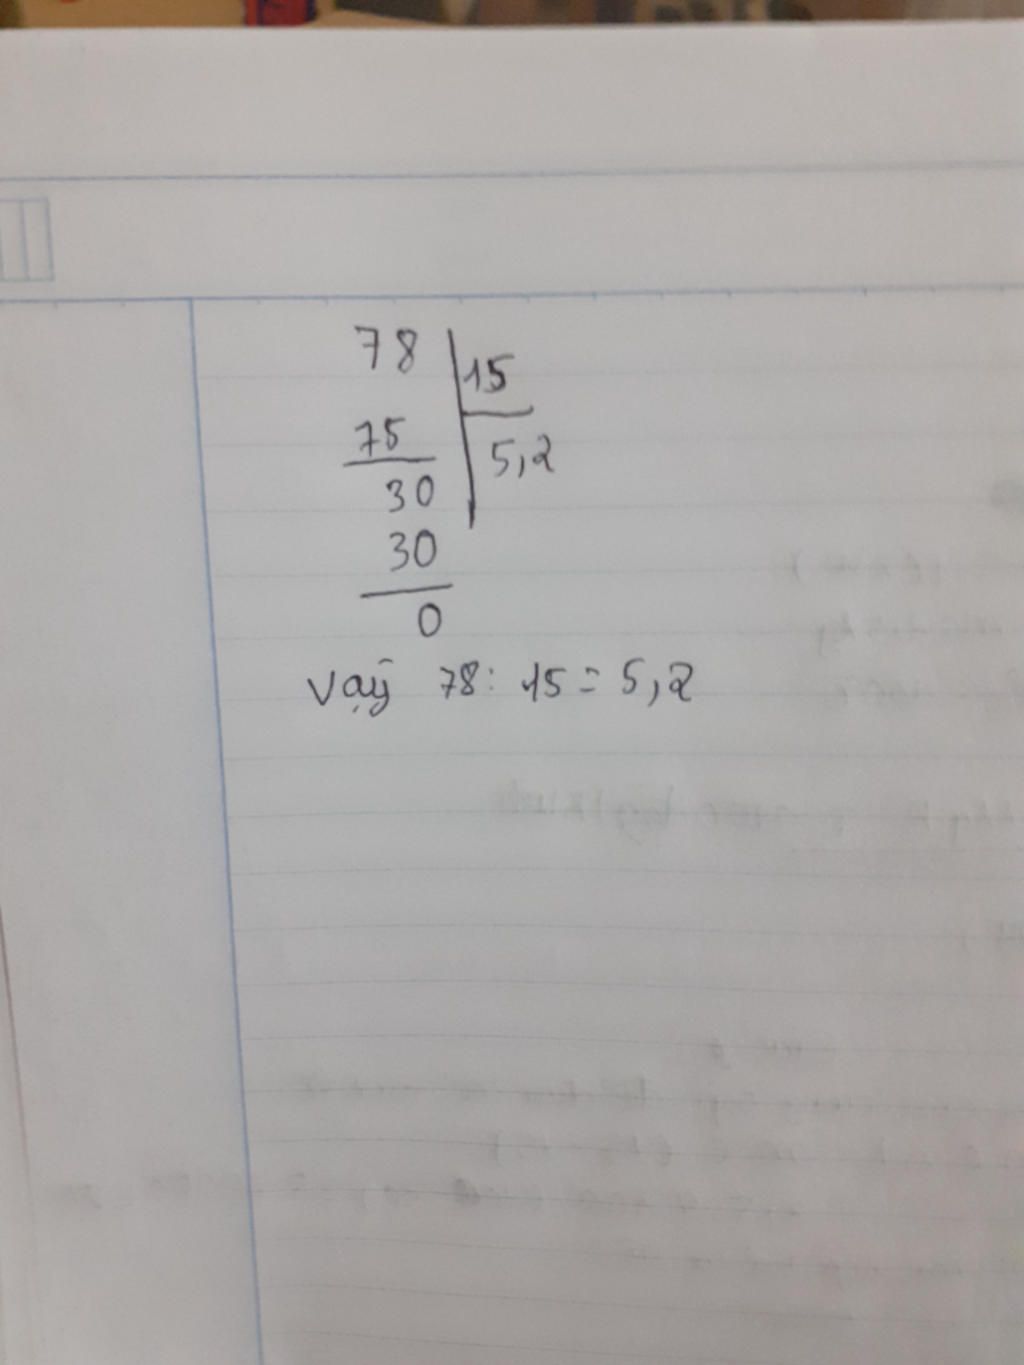 78 15
75 5,2
30
30
0
Vậy 78: 15 = 5,2